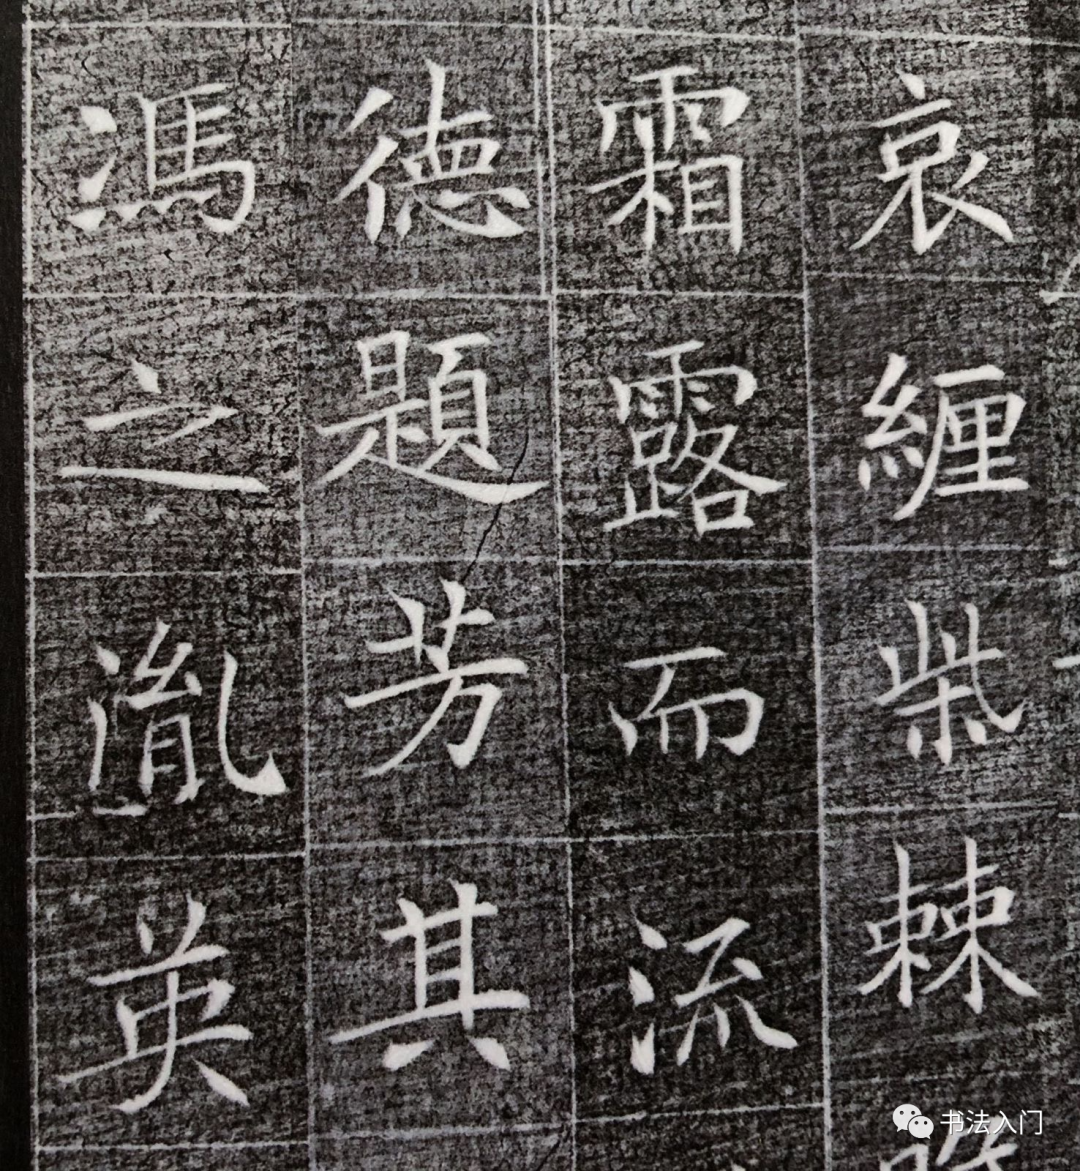 哀纏柴棘
霜露而流
德題芳其
馮之胤英
书法入门